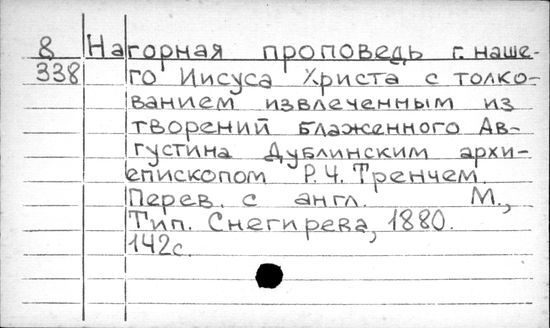 8 Нагорная проповедь г. наше-
338 го Иисуса Христа с толко-
ванием извлеченным из
творений блаженного Ав-
густина Дублинским архи-
епископом Р. Ч. Тренчем.
Перев. с англ. М.,
Тип. Снегирева, 1880.
142с.